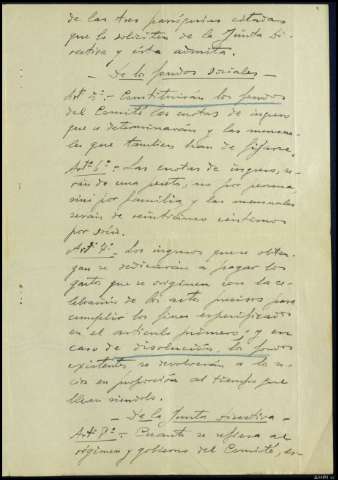 de las tres parroquias citadas
que lo soliciten de la Junta Di-
rectiva y ésta admita.
— De lo fondos sociales —
Artº 5º.- Constituirán los fondos
del Comité las cuotas de ingreso
que se determinarán y las mensua-
les que tambien han de fijarse.
Artº 6º.- Las cuotas de ingreso, se-
rán de una peseta, no por persona
sini por familia y las mensuales
serán de veinticinco centimos
por socio.
Artº 7º.- Los ingresos que se obten-
gan se dedicarán a pagar los
gastos que se originen con la ce-
lebración de los actos precisos para
cumplir los fines especificados
en el artículo primero, y en
caso de disolución, los fondos
existentes se devolverán a los so-
cios en proporción al tiempo que
lleven siendolo.
— De la Junta directiva —
Artº 8º.- Cuanto se refiera al
régimen y gobierno del Comité, es-